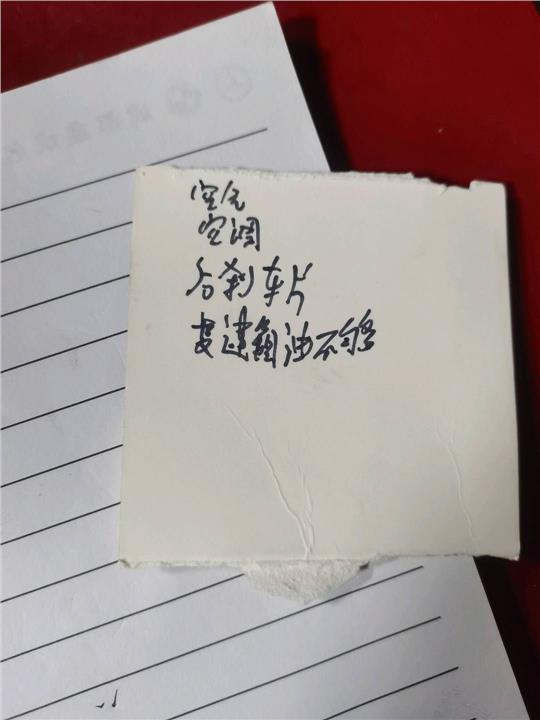 空气
空调
后刹车片
变速箱油不够